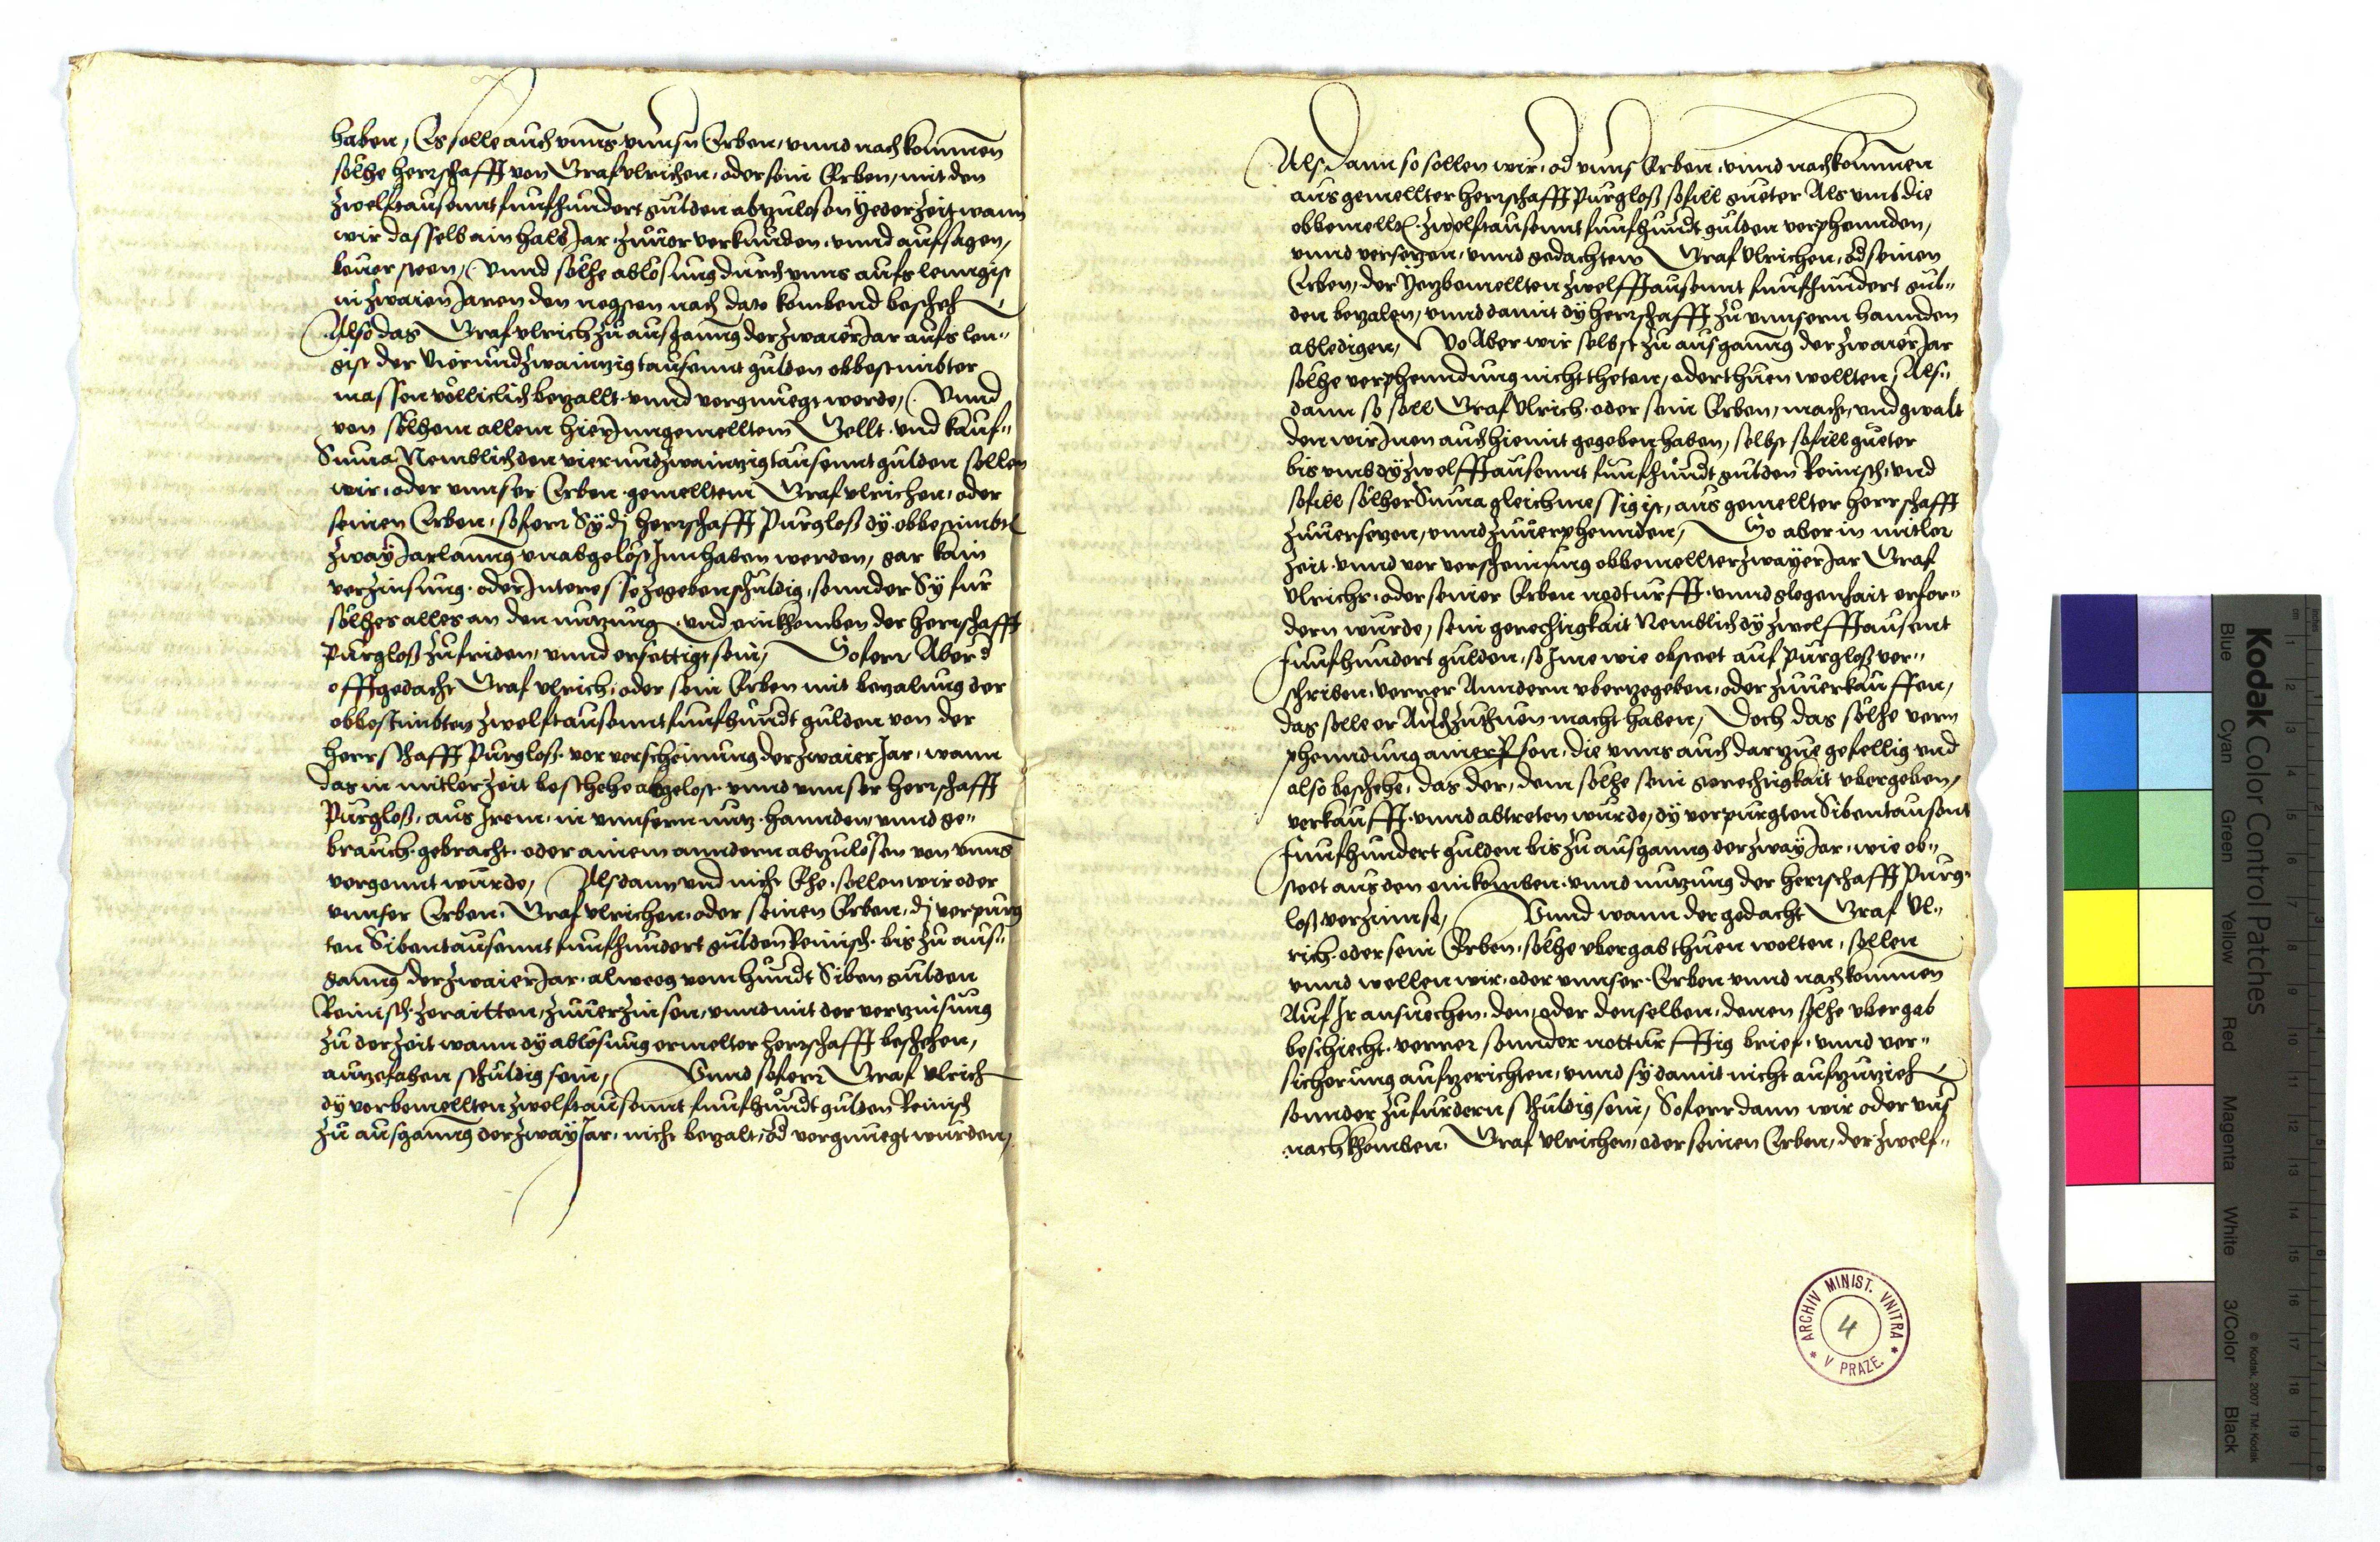 haben, Es solle auch vnns vnnsn Erben, vnnd nachkommen
solhe herrschafft von Graf vlrichen, oder sein Erben, mit den
zwelftausennt funfhundert gulden abzulosen Yeder zeit wann
wir dasselb ain halb Jar zuuor verkunden, vnnd aufsagen,
beuor steen, Vnnd solhe ablosung durch vnns aufs lenngist
in zwaien Jaren den negsten nach dato kombend besheh
Also das Graf vlrich zu ausganng der zwaier Jar aufs len„
gist der Vierundzwainzigtausennt gulden obbestimbter
massen volliclich bezallt vnnd vergnuegt werde, Vnnd
von solhem allem hierJnngemelltem Gellt vnd kauf„
Suma Nemblich den vierundzwainzigtausennt gulden sollen
wir, oder vnnser Erben gemelltem Graf vlrichen, oder
seinen Erben, sofern Sy dj herrschafft Purgloß dy obbestimbt
zway Jarlanng vnabgelost Jnnhaben werden, gar kain
verzinsung oder Jnteresse zegeben schuldig, sonnder Sy fur
solhes alles an den nutzung vnd einkhomben der herrschafft
Purgloß zufriden, vnnd ersettigt sein, Sofern Aber d
offtgedacht Graf vlrich, oder sein Erben mit bezalung der
obbestimbten zwelftausennt funfhundt gulden von der
herrschafft Purgloß vor verscheinung der zwaier Jar, wann
das in mitler zeit beschehe abgelost vnnd vnnser herrschafft
Purgloß, aus Jrem, in vnnsern nutz hannden, vnnd ge„
brauch gebracht oder ainem anndern abzulosen von vnns
vergonnt wurde, Alsdann vnd nicht Ehe sollen wir oder
vnnser Erben, Graf vlrichen, oder seinen Erben, dj verpurg
ten Sibentausennt funfhundert gulden Reinisch bis zu aus„
ganng der zwaier Jar alweeg vom hundt Siben gulden
Reinisch zeraitten, zuuerzinsen, vnnd mit der verzinsung
zu der zeit wann dy ablosung ermelter herrschafft beschehen,
anzefahen schuldig sein, Vnnd sofern Graf vlrich
dy vorbemellten zwelftausennt funfhundt gulden Reinisch
zu ausganng der zway Jar, nicht bezalt, od vergnuegt wurden,
Alsdann so sollen wir, od vnns Erben, vnnd nachkommen
aus gemellter herrschafft Purgloß sofill gueter Als vmb die
obbemellt zwelftausennt funfhundt gulden verphennden,
vnnd versetzen, vnnd gedachtem Graf Vlrichen, od seinen
Erben, der Yetzbemellten zwelfftausennt funfhundert gul„
den bezalen, vnnd damit dy herrschafft zu vnnsern hannden
abledigen, Wo Aber wir selbst zu ausganng der zwaier Jar
solhe verphenndung nicht theten, oder thuen wollten, Als„
dann so soll Graf Vlrich oder sein Erben, macht, vnd gwalt
den wir Jnen auch hiemit gegeben haben, selbst sofill gueter
bis vmb dy zwelfftausennt funfhundt gulden Reinisch, vnd
sofill solher Suma gleichmessig ist, aus gemellter herrschafft
zuuersetzen, vnnd zuuerphennden, So aber in mitler
zeit vnnd vor verscheinung obbemellter zwayer Jar Graf
Vlrichs, oder seiner Erben nodturfft vnnd glegenhait erfor„
dern wurde, sein gerechtigkait Nemblich dy zwelfftausennt
funfhundert gulden, so Jme wie obsteet auf Purgloß ver„
schriben, verrer Anndern vbertzegeben, oder zuuerkauffen,
das solle er Auch zuthuen macht haben, Doch das solhe ver„
phenndung ainer Pson, die vnns auch darzue gefellig vnd
also beschehe, das der, dem solhe sein gerechtigkait vbergeben,
verkaufft vnnd abtreten wurde, dy verpurgten Sibentausent
funfhundert gulden bis zu ausganng der zway Jar, wie ob„
steet aus den einkomben vnnd nutzung der herrschafft Purg„
loß verzinnse, Vnnd wann der gedacht Graf Vl„
rich oder sein Erben, solhe vbergab thuen wolten, sollen
vnnd wellen wir, oder vnnser Erben vnnd nachkommen
Auf Jr ansuechen, den, oder denselben, denen solhe vbergab
beschiecht verrer sonnder notturfftig brief, vnnd ver„
sicherung aufzerichten, vnnd sy damit nicht aufzuzieh
sonnder zufurdern schuldig sein, Sofern dann wir oder vns
nachkhomben, Graf vlrichen, oder seinen Erben, der zwelf„
ARCHIV MINIST. VNITRA V PRAZE.
4
Kodak Color Control Patches
© Kodak, 2007 TM: Kodak
Blue Cyan Green Yellow Red Magenta White 3/Color Black